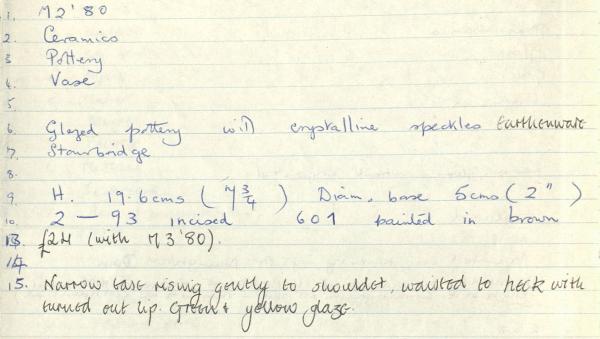 1. M2'80
2. Ceramics
3 Pottery
4. Vase
5.
6. Glazed pottery with crystalline speckles Earthenware
7. Stourbridge
8.
9. H. 19.6cms (7 3/4) Diam. base 5cms (2")
10. 2 — 93 incised 601 painted in brown
13. £24 (with M3'80).
14.
15. Narrow base rising gently to shoulder, waisted to neck with
turned out lip. Green & yellow glaze.